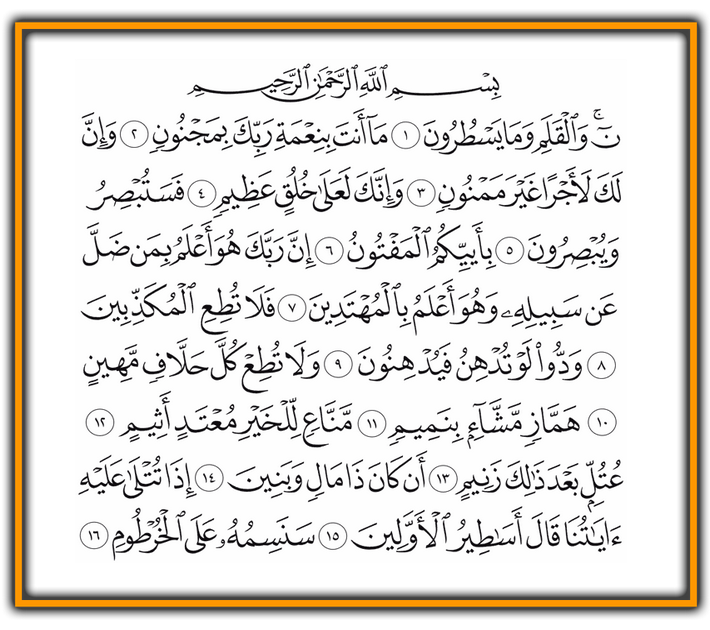 بِسْمِ ٱللَّهِ ٱلرَّحْمَٰنِ ٱلرَّحِيمِ
نٓ ۚ وَٱلْقَلَمِ وَمَا يَسْطُرُونَ ١ مَآ أَنتَ بِنِعْمَةِ رَبِّكَ بِمَجْنُونٍ ٢ وَإِنَّ
لَكَ لَأَجْرًا غَيْرَ مَمْنُونٍ ٣ وَإِنَّكَ لَعَلَىٰ خُلُقٍ عَظِيمٍ ٤ فَسَتُبْصِرُ
وَيُبْصِرُونَ ٥ بِأَييِّكُمُ ٱلْمَفْتُونُ ٦ إِنَّ رَبَّكَ هُوَ أَعْلَمُ بِمَن ضَلَّ
عَن سَبِيلِهِۦ وَهُوَ أَعْلَمُ بِٱلْمُهْتَدِينَ ٧ فَلَا تُطِعِ ٱلْمُكَذِّبِينَ
٨ وَدُّوا۟ لَوْ تُدْهِنُ فَيُدْهِنُونَ ٩ وَلَا تُطِعْ كُلَّ حَلَّافٍ مَّهِينٍ
١٠ هَمَّازٍ مَّشَّآءٍۭ بِنَمِيمٍ ١١ مَّنَّاعٍ لِّلْخَيْرِ مُعْتَدٍ أَثِيمٍ ١٢
عُتُلٍّۭ بَعْدَ ذَٰلِكَ زَنِيمٍ ١٣ أَن كَانَ ذَا مَالٍ وَبَنِينَ ١٤ إِذَا تُتْلَىٰ عَلَيْهِ
ءَايَٰتُنَا قَالَ أَسَٰطِيرُ ٱلْأَوَّلِينَ ١٥ سَنَسِمُهُۥ عَلَى ٱلْخُرْطُومِ ١٦